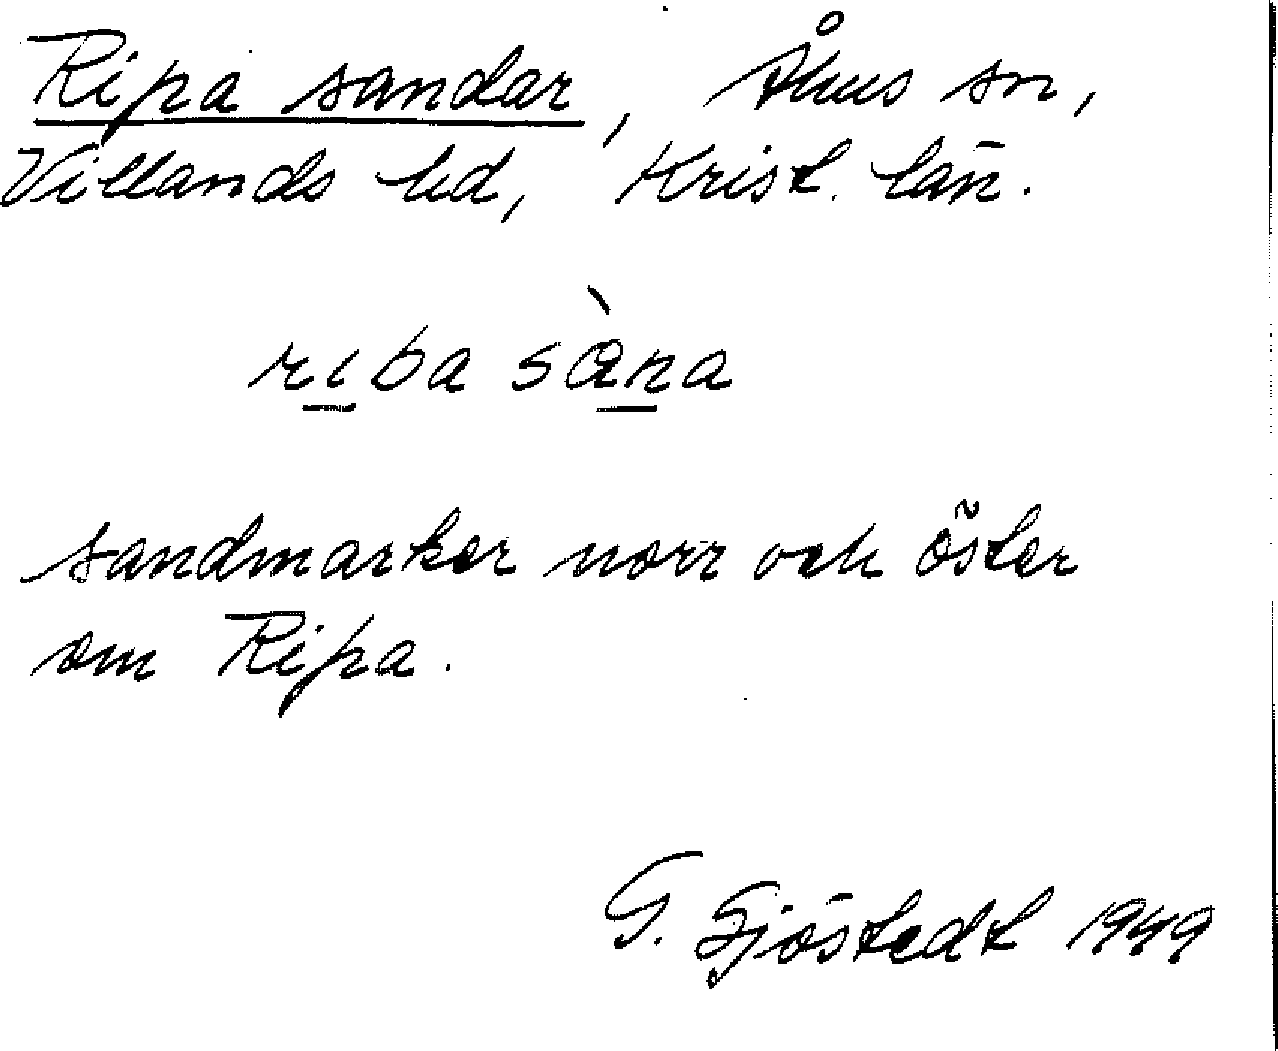 Ripa sandar, Åhus sn,
Villands hd, Krist. län.
rıba sàna
sandmarker norr och öster
om Ripa.
G. Sjöstedt 1949